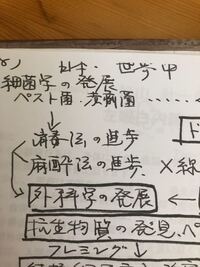 世界中
細菌学の発展
ペスト菌・赤痢菌 ……
↓
消毒法の進歩
麻酔法の進歩. X線
外科学の発展 ←
抗生物質の発見. ペ
フレミング↓